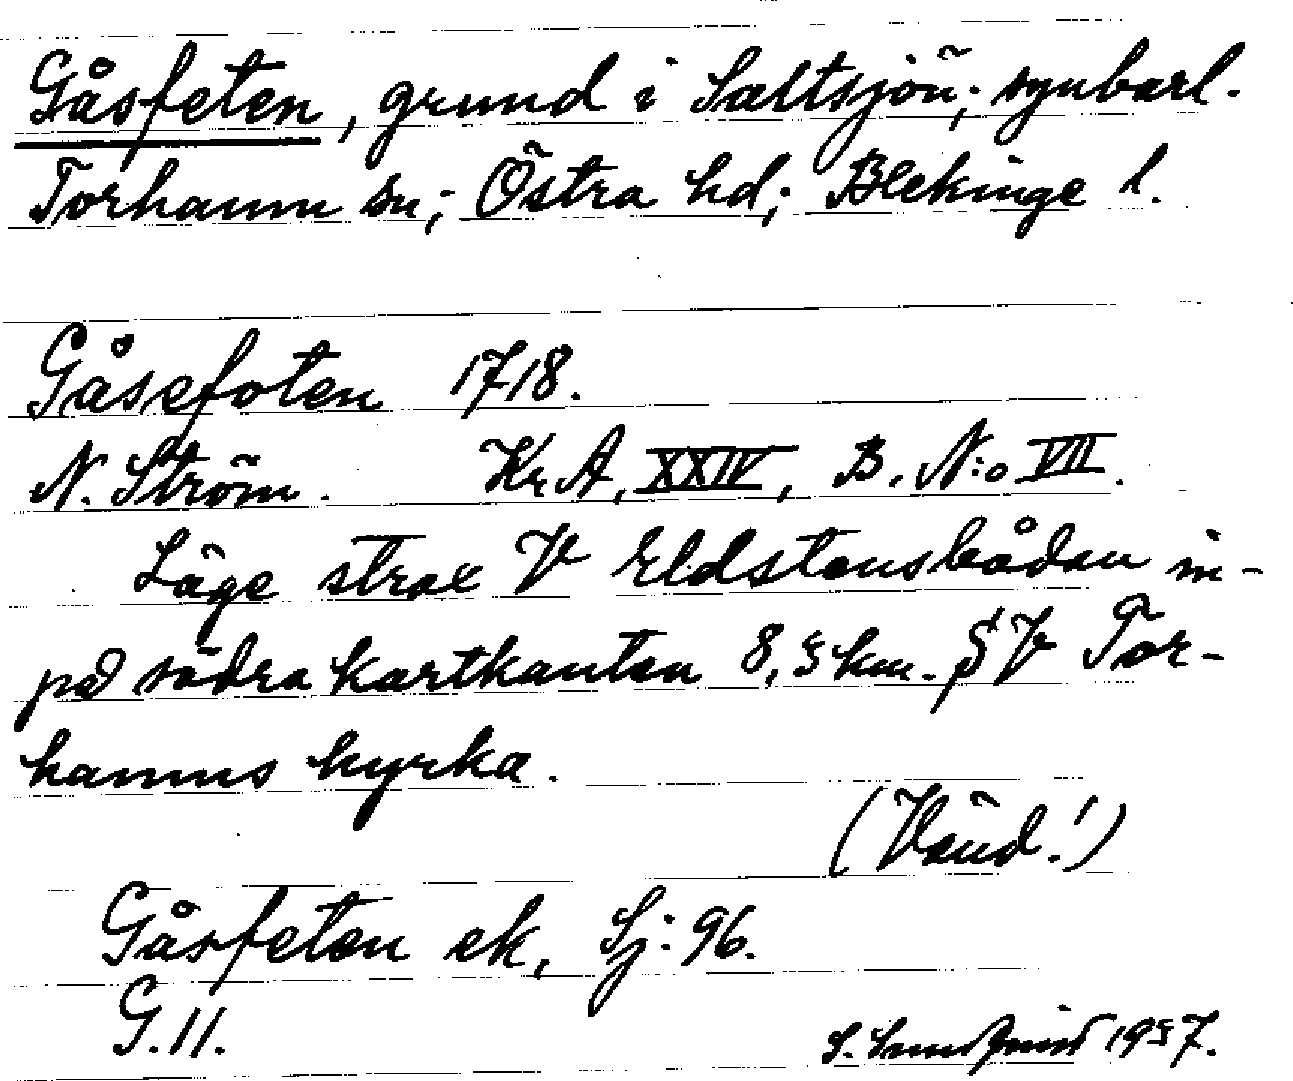 Gåsfeten, grund i Saltsjön; synbarl.
Torhamn sn; Östra hd; Blekinge l.
Gåsefoten 1718.
N. Ström. Kr. A, XXIV, B. N:o VII.
Läge strax V Eldstensbådan in-
på södra kartkanten 8,5 km. SV Tor-
hamns kyrka.
(Vänd!)
Gåsfeten ek, Sj: 96.
G. 11.
S. 1957.